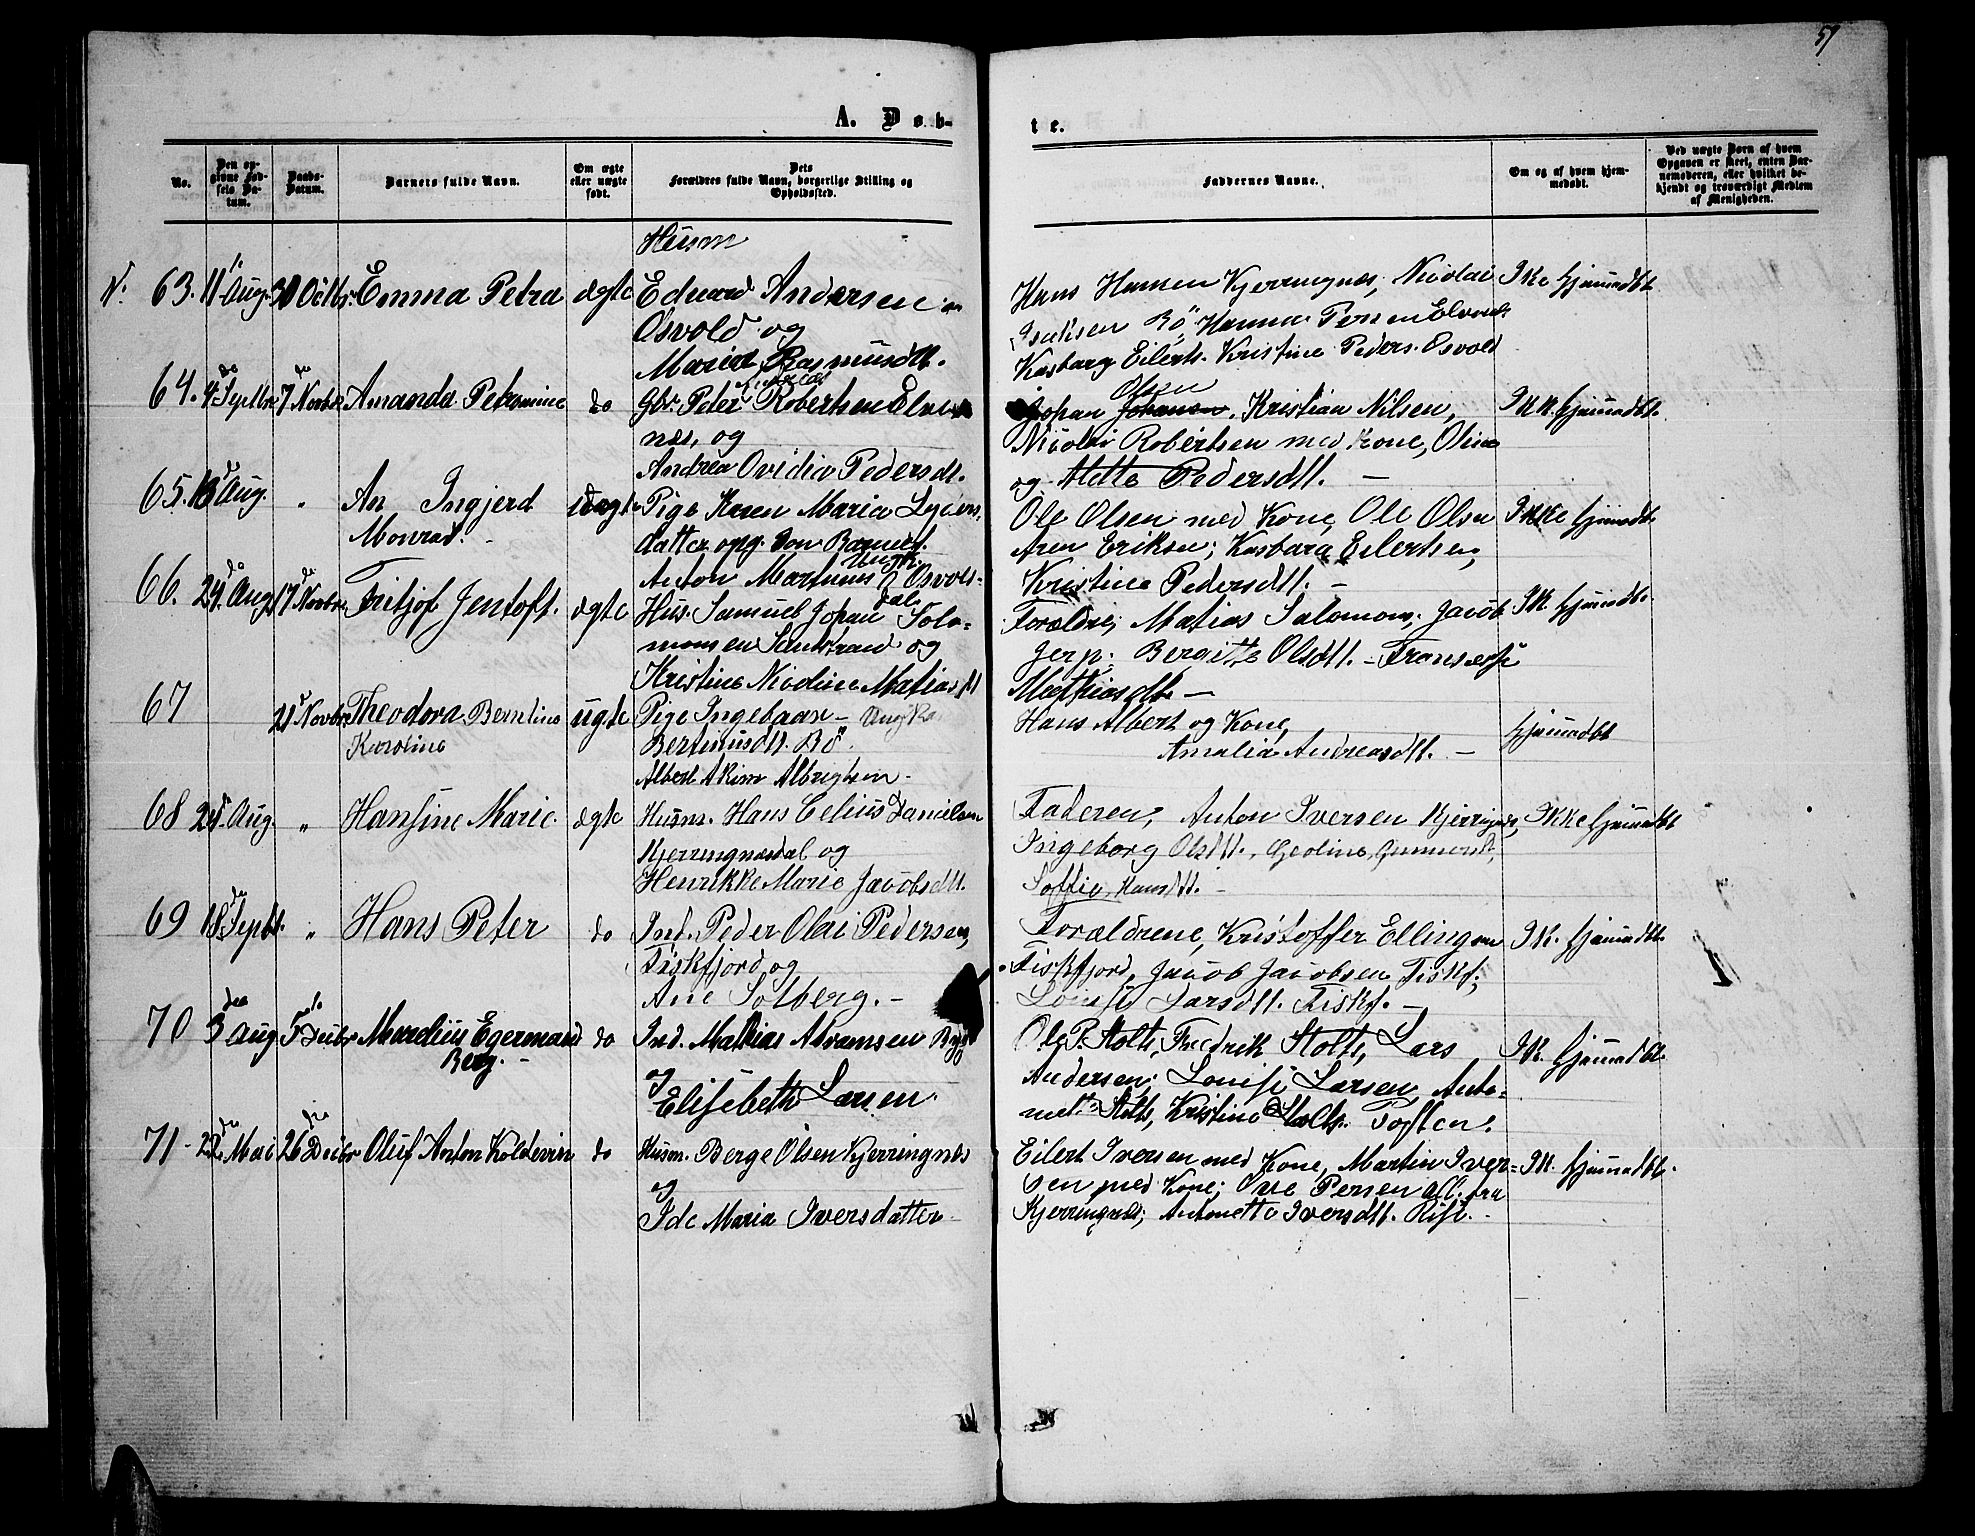 59
A. Døb-
te.
No.
Den op-
givne Fød-
sels Da-
tum.
Daabs-
Datum.
Barnets fulde Navn.
Om ægte
eller uægte
født.
Dets
Forældres fulde Navn, borgerlige Stilling og
Opholdssted.
Faddernes Navne.
Om og af hvem hjem-
medøbt.
Ved uægte Børn af hvem
Opgaven er skeet, enten Bar-
nemoderen, eller hvilket be-
kjendt og troværdigt Medlem
af Menigheden.
Husm
N. 63. 11 Aug. Octbr. Emma Petra ægte Eduard Andersen
Osvold og
Maria Rasmusdtt.
Hans Hansen Kjerringnæs, Nicolai
Isaksen Bø, Hanna Persen
Kasbara Eilerts. Kristine Peders. Osvold
Ikke hjemmedbt
64. 4 Septbr 7 Novbr Amanda Petromine do Gbr. Peter Robertsen Elve
næs, og
Andrea Ovidia Pedersdt.
Olsen
Johan Johansen, Kristian Nilsen,
Nicolai Robertsen med Kone, Olina
og Mette Pedersdtt. —
Ikk. hjemmedbt.
65. 13 Aug. " An Ingjerd
Monrad.
uægte Pige Karen Maria
datter, opg. som Barnef.
Ungk.
Anton Martinus Osvold-
dal.
Ole Olsen med Kone, Ole Olsen
Aren Eriksen, Kasbara Eilertsen,
Kristine Pedersdtt. —
Ikke hjemmdbt.
66. 29 Aug. 17 Novbr Fritjof Jentoft. ægte Hus. Samuel Johan Solo-
monsen Sandstrand og
Kristine Nicoline Matiasdt
Forældre, Matias Salomons, Jacob
Jesp. Bergitte Olsdtt. - Fransese
Mathiasdtt —
Ik. hjemmdbt.
67 21 Novbr Theodora Berntine
Karoline
uægte Pige Ingebaar - Ungkar
Bertinusdtt. Bø.
Albert Akim Albrigtsen -
Hans Albert og Kone,
Amalia Andreasdtt. —
hjemmdbt
68 24 Aug. " Hansine Marie. ægte Husm. Hans Celius Danielsen
Kjerringnæsdal og
Henrikke Marie Jacobsdtt.
Faderen, Anton Iversen Kjerringnæs,
Ingeborg Olsdtt.,
Soffie Hansdtt. -
Ikke hjemmdbt
69 18 Septbr. " Hans Peter do Ind. Peder Olai Pedersen,
Fiskfjord og
Ane Solberg. -
Forældrene, Kristoffer Ellingsen
Fiskfjord, Jacob Jacobsen Fiskf.,
Louise Larsdtt. Fiskf. —
Ik. hjemmdbt.
70 3 Aug 5 Decbr Mardius Egermand
Berg. -
do Ind. Mathias Abramsen
og
Elisebeth Larsen.
Ole P. Stolts, Fredrik Stolts, Lars
Andersen, Louise Larsen, Anto-
nette Stolts, Kristine Stolts. Toften.
Ik. hjemmdbt.
71 - 22 Mai 26 Decbr Oluf Anton Koldevin do Husm. Berge Olsen Kjerringnæs
og
Ide Maria Iversdatter -
Eilert Iversen med Kone, Martin Iver-
sen med Kone, Ove Persen all. fra
Kjerringnæs, Antonette Iversdtt. Rise. -
Ik. hjemmdbt.